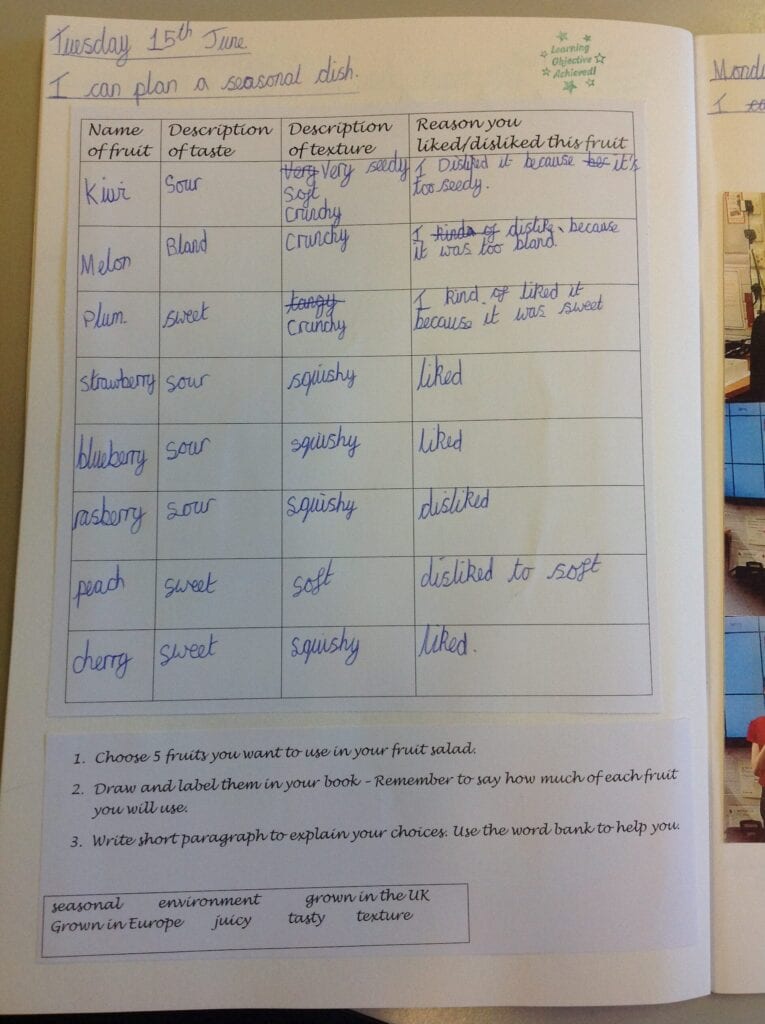 Tuesday 15th June
I can plan a seasonal dish.
Learning
Objective
Achieved!
Name of fruit | Description of taste | Description of texture | Reason you liked/disliked this fruit
Kiwi | Sour | Very Very seedy Soft Crunchy | I Disliked it because bec it's too seedy.
Melon | Bland | Crunchy | I kinda of dislike, because it was too bland.
Plum | sweet | tangy Crunchy | I kind of liked it because it was sweet
strawberry | sour | squishy | liked
blueberry | sour | squishy | liked
rasberry | sour | squishy | disliked
peach | sweet | soft | disliked to soft
cherry | sweet | squishy | liked.
1. Choose 5 fruits you want to use in your fruit salad.
2. Draw and label them in your book – Remember to say how much of each fruit
you will use.
3. Write short paragraph to explain your choices. Use the word bank to help you.
seasonal environment grown in the UK
Grown in Europe juicy tasty texture
Monda
I